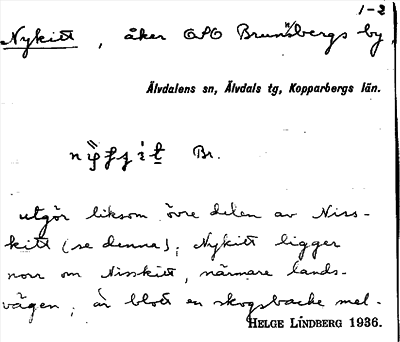 1-2
Nykitt, åker OSO Brunnsbergs by,
Älvdalens sn, Älvdals tg, Kopparbergs län.
Br.
utgör liksom övre delen av Niss-
kitt (se denna); Nykitt ligger
norr om Nisskitt, närmare lands-
vägen; är blott en skogsbacke mel-
HELGE LINDBERG 1936.